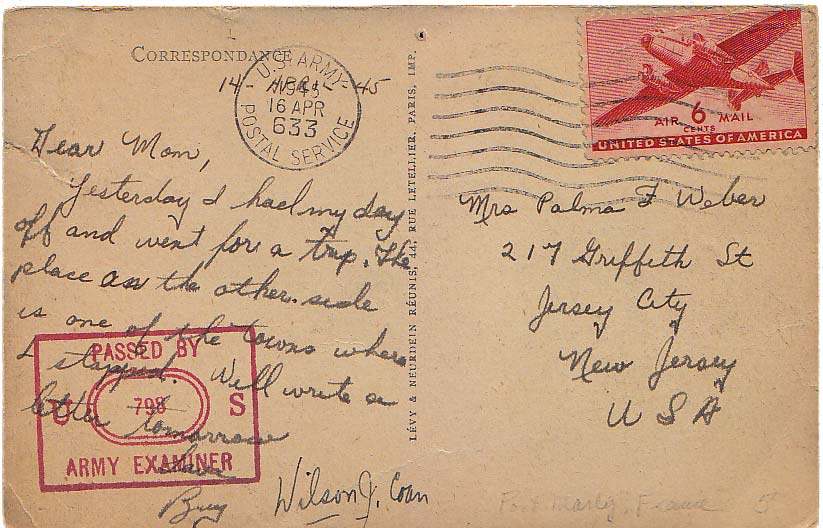 CORRESPONDANCE
14 - APR - 45
U.S. ARMY
1945
16 APR
633
POSTAL SERVICE
Dear Mom,
Yesterday I had my day
off and went for a trip. The
place on the other side
is one of the towns where
I stopped. Will write a
letter tomorrow
Love
Wilson J. Coan
PASSED BY
U 798 S
ARMY EXAMINER
LÉVY & NEURDEIN RÉUNIS, 44, RUE LETELLIER, PARIS, IMP.
AIR 6 MAIL
CENTS
UNITED STATES OF AMERICA
Mrs Palma F Weber
217 Griffeth St
Jersey City
New Jersey
U S A
Port Marly, France